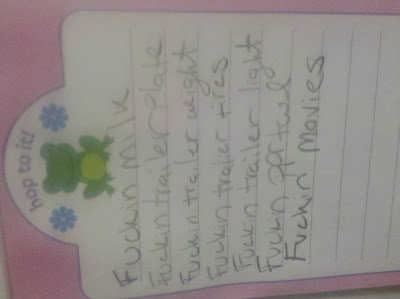 hop to it!
Fuckin Milk
Fuckin trailer plate
Fuckin trailer weight
Fuckin trailer tires
Fuckin trailer light
Fuckin ppr twl
Fuckin Movies